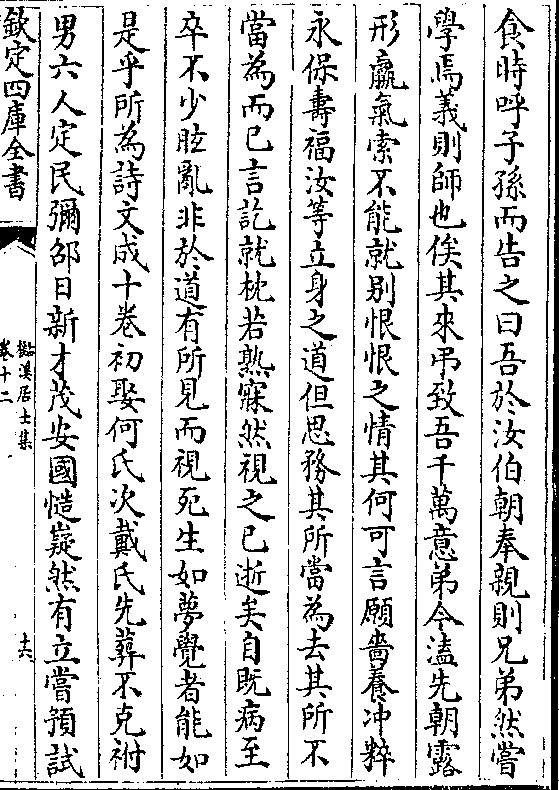 食時呼子孫而告之曰吾於汝伯朝奉親則兄弟然嘗
學焉義則師也俟其來弔致吾千萬意弟今溘先朝露
形羸氣索不能就别恨恨之情其何可言願嗇養冲粹
永保壽福汝等立身之道但思務其所當為去其所不
當為而已言訖就枕若熟寐然視之已逝矣自既病至
卒不少眩亂非於道有所見而視死生如夢覺者能如
是乎所為詩文成十卷初娶何氏次戴氏先葬不克祔
男六人定民彌邵日新才茂安國慥嶷然有立嘗預試
欽定四庫全書
檆溪居士集
卷十二
十六